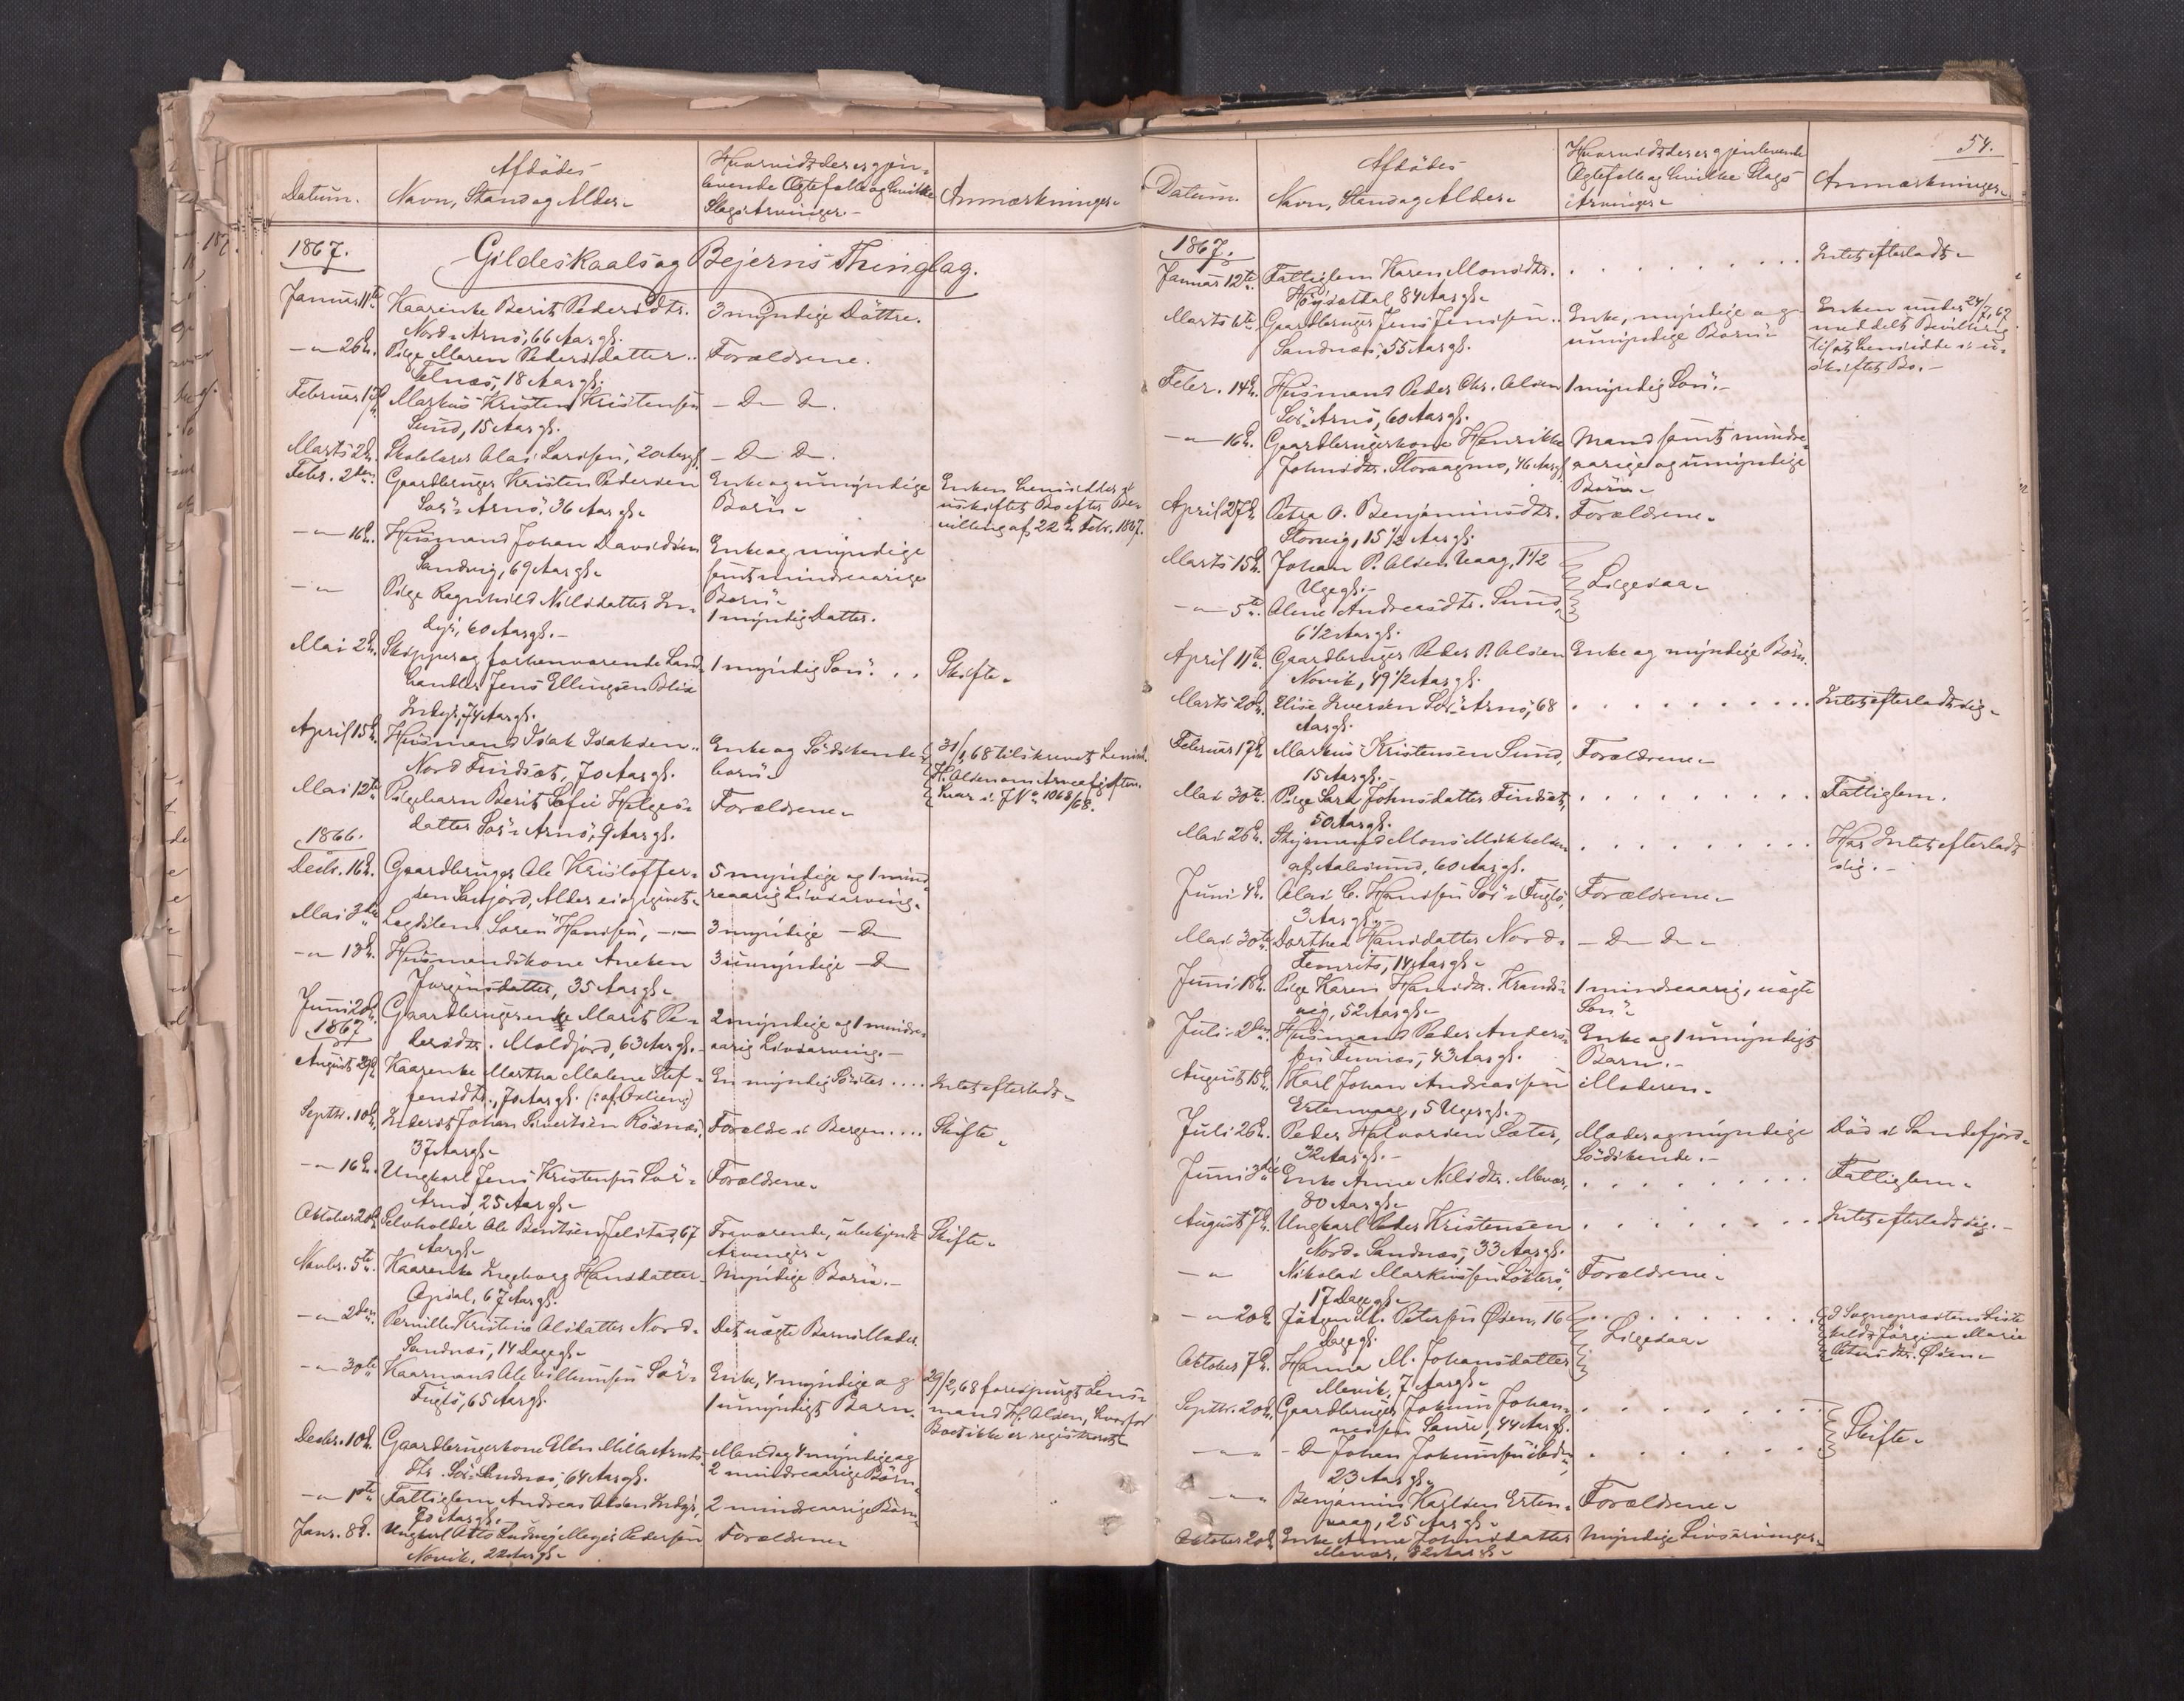 Datum.
Afdødes
Navn, Stand og Alder
Hvorvidt der er gjen-
levende Ægtefælle og hvilke
Slags Arvinger.
Anmærkninger
1867.
Gildeskaals og Bejerns Thinglag.
Januar 11te
Kaarenke Berit Pedersdtr.
Nord-Arnø, 66 Aar gl.
3 myndige Døttre.
-"- 26d.
Pige Maren Pedersdatter
18 Aar gl.
Forældrene.
Februar 17d.
Markus Kristen Kristensen
Sund, 15 Aar gl.
- Do Do.
Marts 2d.
Skolelærer Olai Larsen, 20 Aar gl.
- Do Do.
Febr. 2den
Gaardbruger Kristen Pedersen
Sør-Arnø, 36 Aar gl.
Enke og umyndige
Børn
Enken hensidder i
uskiftet Bo efter Be-
villing af 22d. Febr. 1867.
-"- 16d.
Husmand Johan Davidsen
Sandvig, 69 Aar gl.
Enke og myndige
samt mindreaarige
Børn
-"-
Pige Ragnhild Nilsdatter In-
dyr, 60 Aar gl.
1 myndig Datter.
Mai 2d.
Skipper og forhenværende Land-
handler Jens Ellingsen Blix
Indyr, 74 Aar gl.
1 myndig Søn. . .
Skifte
April 15d.
Husmand Isak Isaksen
Nord Findset, 70 Aar gl.
Enke og Sødskende-
børn
31/1 68 tilskrevet Lensm.
H. Olsen om Arveafgiften.
Svar i J No 1068/68.
Mai 12te
Pigebarn Berit Sofie Helges-
datter Sør-Arnø, 9 Aar gl.
Forældrene
1866.
Decbr. 16d.
Gaardbruger Ole Kristoffer-
sen Sørfjord, Alder ei opgivet
5 myndige og 1 mind-
reaarig Livsarving.
Mai 3die
Legdslem Søren Hansen, -"-
3 myndige - Do
-"- 13d.
Husmandskone Aneken
Jørgensdatter, 35 Aar gl.
3 umyndige - Do
Juni 20d.
Gaardbrugerenke Marit Pe-
dersdtr. Moldjord, 63 Aar gl.
2 myndige og 1 mindre-
aarig Livsarving.
1867
August 29d
Kaarenke Martha Malene Stef-
fensdtr., 70 Aar gl.
En myndig Søster . . . .
Intet efterladt
Septbr. 10d.
Inderst Johan Sivertsen Røsnæs,
37 Aar gl.
Forældre i Bergen. . . .
Skifte
-"- 16d.
Ungkarl Jens Kristensen Sør-
Arnø, 25 Aar gl.
Forældrene
Oktober 20d
Selvholder Ole Bentsen Jelstad, 67
Aar gl.
Fraværende, ubekjendte
Arvinger
Skifte
Novbr. 5te
Kaarenke Ingeborg Hansdatter
67 Aar gl.
Myndige Børn.
-"- 2den
Pernille Kristine Olsdatter Nord-
Sandnæs, 14 Dage gl.
Det uægte Barns Moder.
-"- 30te
Kaarmand Ole Villumsen Sør-
Fuglø, 65 Aar gl.
Enke, 4 myndige og
1 umyndigt Barn.
29/2, 68 forespurgt Lens-
mand H. Olsen, hvorfor
Boet ikke er registreret
Decbr. 10d.
Gaardbrugerkone Arnts-
dtr. Sør-Sandnæs, 64 Aar gl.
Mand og 4 myndige og
2 mindreaarige Børn.
-"- 1ste
Fattiglem Andreas Olsen Indyr,
70 Aar gl.
2 mindreaarige Børn
Janr. 8d.
Ungkarl Ludvig Meyer Pedersen
Novik, 22 Aar gl.
Forældrene
54.
Datum.
Afdødes
Navn, Stand og Alder
Hvorvidt der er gjenlevende
Ægtefælle og hvilke Slags
Arvinger
Anmærkninger
1867.
Januar 12te
Fattiglem Karen Monsdtr.
84 Aar gl.
Intet efterladt
Marts 6te
Gaardbruger Jens Jensen
Sandnæs, 55 Aar gl.
Enke, myndige og
umyndige Børn
Enken under 24/7, 67
meddelt Bevilling
til at hensidde i u-
skiftet Bo.
Febr. 14d.
Husmand Peder Chr. Olsen
Sør-Arnø, 60 Aar gl.
1 myndig Søn.
-"- 16d.
Gaardbrugerkone Henrikke
Johnsdtr. Storaagmo, 46 Aar gl.
Mand samt mindre-
aarige og umyndige
Børn
April 27d
Petra O. Benjaminsdtr.
Storvig, 15 1/2 Aar gl.
Forældrene
Marts 15d.
Johan P. Olsen Vaag, 1 1/2
Uge gl.
Ligesaa
-"- 5te
Oline Andreasdtr. Sund,
6 1/2 Aar gl.
April 11te
Gaardbruger Peder P. Olsen
Novik, 49 1/2 Aar gl.
Enke og myndige Børn.
Marts 20d.
Elise Iversen Sør-Arnø, 68
Aar gl.
Intet efterladt sig
Februar 17d
Markus Kristensen Sund,
15 Aar gl.
Forældrene
Mai 30te
Pige Sara Johnsdatter Findset,
50 Aar gl.
Fattiglem.
Mai 26d.
Styrmand Mons Mikkelsen
af Aalesund, 60 Aar gl.
Har Intet efterladt
sig.
Juni 4d.
Olai C. Hansen Sør-Fuglø,
3 Aar gl.
Forældrene
Mai 30te
Dorthea Hansdatter Nord-
14 Aar gl.
- Do Do
Juni 18d.
Pige Karen Hansdtr. Krands-
vig, 52 Aar gl.
1 mindreaarig, uægte
Søn
Juli 2den
Husmand Peder Anders-
sen 43 Aar gl.
Enke og 1 umyndigt
Barn.
August 15d.
Karl Johan Andreassen
Ertenvaag, 5 Uger gl.
Moderen
Juli 26d.
Peder Halvorsen Sæter,
32 Aar gl.
Moder og myndige
Sødskende.
Død i Sandefjord
Juni 3die
Enke Anne Nilsdtr. Mevær,
80 Aar gl.
Fattiglem
August 7d.
Ungkarl Peder Kristensen
Nord-Sandnæs, 33 Aar gl.
Intet efterladt sig.
-"-
Nikolai Markussen
17 Dage gl.
Forældrene
-"- 20d.
Jørgen M. Petersen Øsen, 16
Dage gl.
Ligesaa
I Sognepræstens Liste
kaldt Jørgine Marie
Petersdtr. Øsen
Oktober 7d.
Hanna M. Johansdatter
Mevik, 7 Aar gl.
Septbr. 20d.
Gaardbruger Jokum Johan-
nessen Saure, 44 Aar gl.
Skifte
-"-
- Do Johan Jokumsen ibdm,
23 Aar gl.
-"-
Benjamin Karlsen Erten-
vaag, 25 Aar gl.
Forældrene
Oktober 20d
Enke Anne Johnsdatter
Mevær, 82 Aar gl.
Myndige Livsarvinger